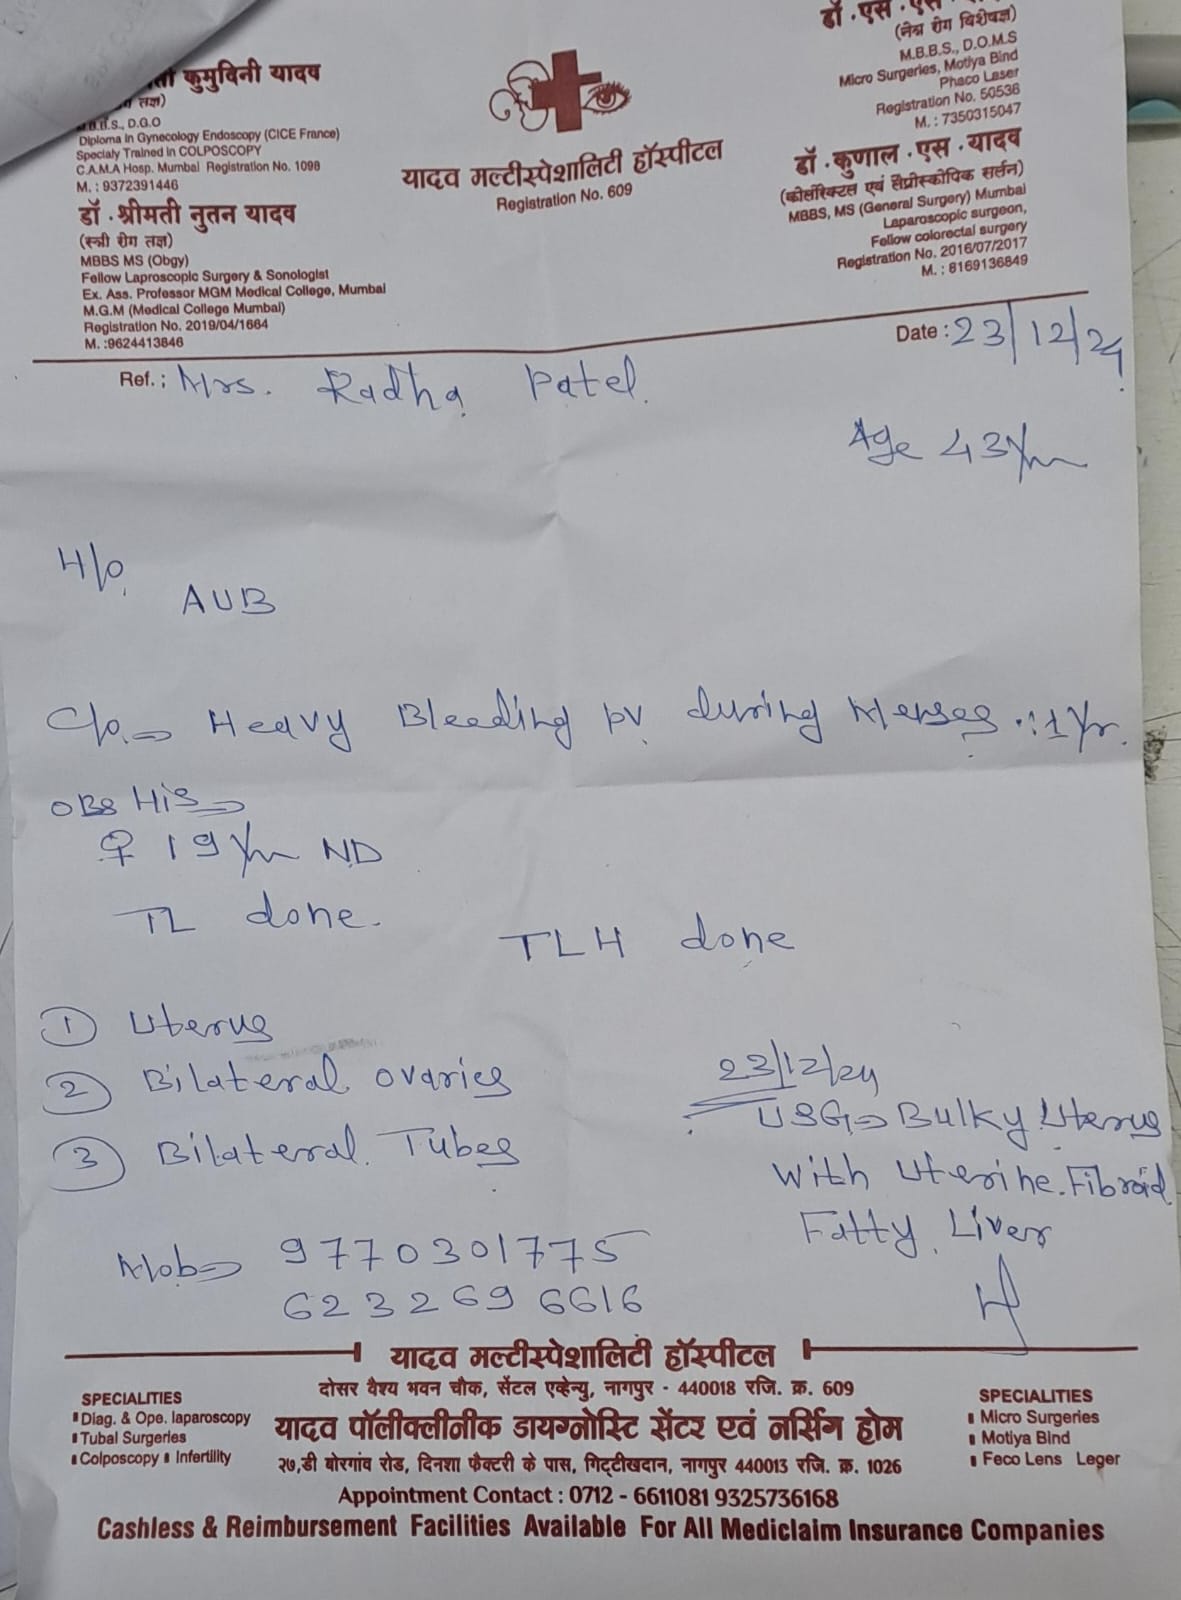 कुमुदिनी यादव
तज्ञ)
D.G.O
Diploma in Gynecology Endoscopy (CICE France)
Specialy Trained in COLPOSCOPY
C.A.M.A Hosp. Mumbai Registration No. 1098
M. : 9372391446
डॉ . श्रीमती नुतन यादव
(स्त्री रोग तज्ञ)
MBBS MS (Obgy)
Fellow Laproscopic Surgery & Sonologist
Ex. Ass. Professor MGM Medical College, Mumbai
M.G.M (Medical College Mumbai)
Registration No. 2019/04/1664
M. :9624413846
यादव मल्टीस्पेशालिटि हॉस्पीटल
Registration No. 609
डॉ . एस . एस
(नेत्र रोग विशेषज्ञ)
M.B.B.S., D.O.M.S
Micro Surgeries, Motiya Bind
Phaco Laser
Registration No. 50536
M. : 7350315047
डॉ . कुणाल . एस . यादव
(कोलॉरेक्टल एवं लॅप्रोस्कोपिक सर्जन)
MBBS, MS (General Surgery) Mumbai
Laparoscopic surgeon,
Fellow colorectal surgery
Registration No. 2016/07/2017
M. : 8169136849
Date : 23/12/24
Ref. : Mrs. Radha Patel.
Age 43 Yrs
H/o
AUB
C/o → Heavy Bleeding pv during Menses . : 1 Yr.
OBS His →
♀ 19 Yrs ND
TL done.
TLH done
① Uterus
② Bilateral ovaries
③ Bilateral Tubes
23/12/24
USG → Bulky Uterus
With Uterine Fibroid
Fatty Liver
Mob → 9770301775
6232696616
यादव मल्टीस्पेशालिटी हॉस्पीटल
दोसर वैश्य भवन चौक, सेंटल एव्हेन्यु, नागपुर - 440018 रजि. क्र. 609
यादव पॉलीक्लीनीक डायग्नोस्टि सेंटर एवं नर्सिंग होम
२७,डी बोरगांव रोड, दिनशा फैक्टरी के पास, गिट्टीखदान, नागपुर 440013 रजि. क्र. 1026
SPECIALITIES
Diag. & Ope. laparoscopy
Tubal Surgeries
Colposcopy Infertility
SPECIALITIES
Micro Surgeries
Motiya Bind
Feco Lens Leger
Appointment Contact : 0712 - 6611081 9325736168
Cashless & Reimbursement Facilities Available For All Mediclaim Insurance Companies